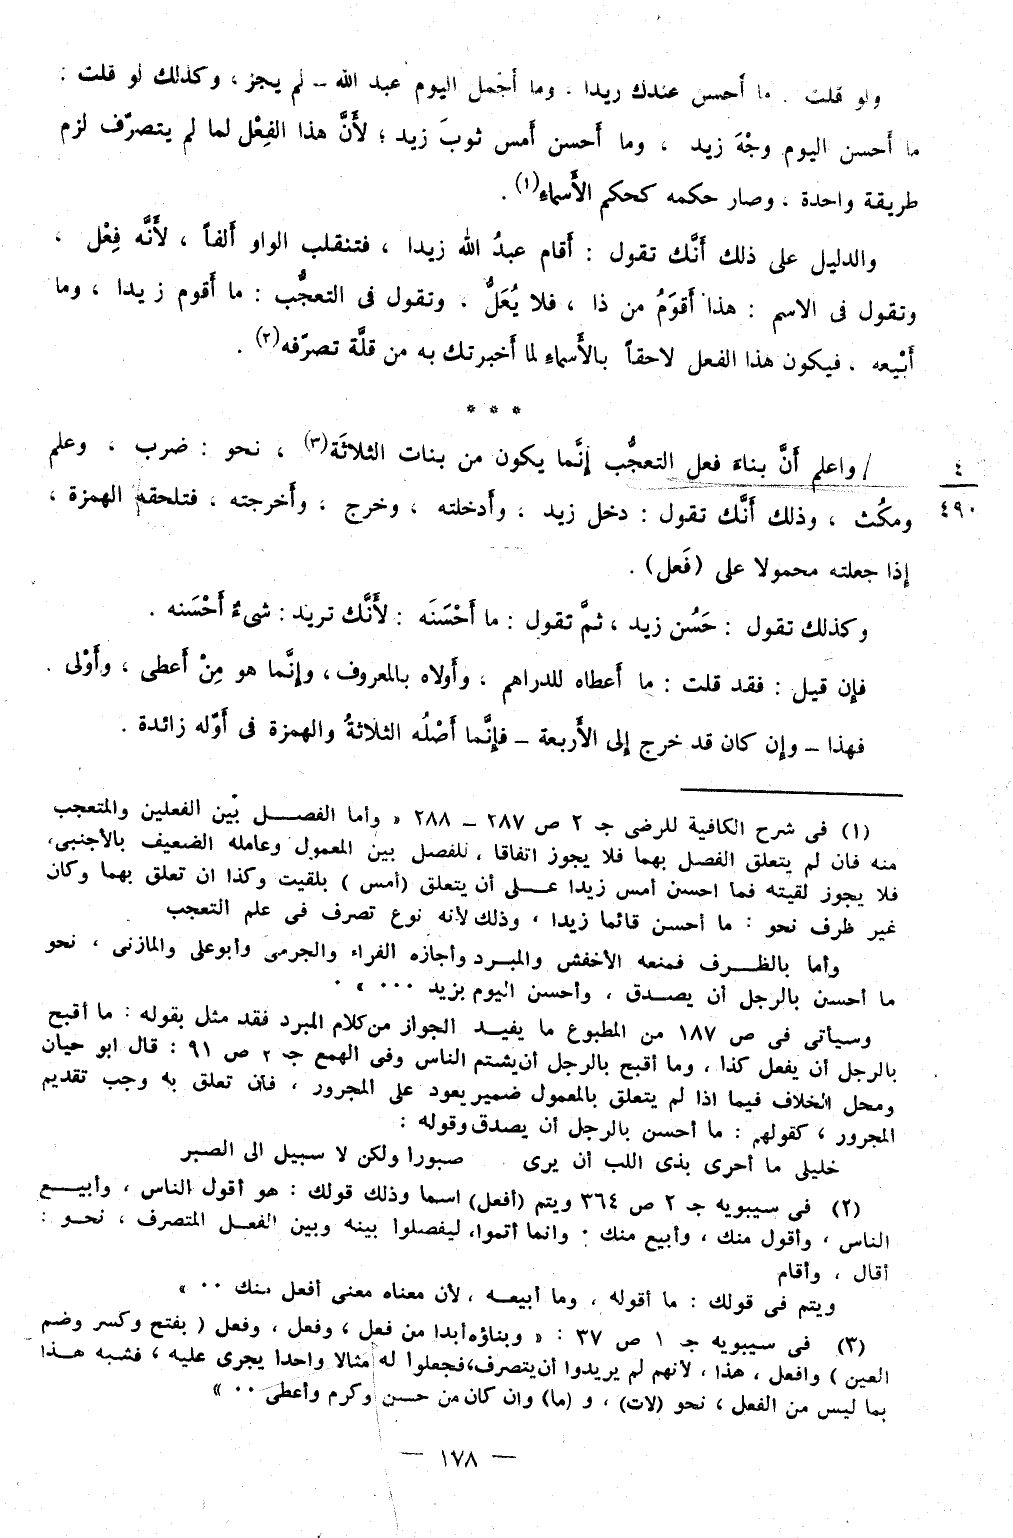 ولو قلت : ما أحسن عندك زيدا ، وما أَجْمل اليوم عبد الله – لم يجز ، وكذلك لو قلت :
ما أَحسن اليوم وجْهَ زيد ، وما أَحسن أَمس ثوبَ زيد ؛ لأَنَّ هذا الفِعْل لما لم يتصرّف لزم
طريقة واحدة ، وصار حكمه كحكم الأَسماءِ(١) .
والدليل على ذلك أَنَّك تقول : أَقام عبدُ الله زيدا ، فتنقلب الواو أَلفاً ، لأَنَّه فِعْل ،
وتقول فى الاسم : هذا أَقوَمُ من ذا ، فلا يُعَلُّ ، وتقول فى التعجُّب : ما أَقوم زيدا ، وما
أَبْيعه ، فيكون هذا الفعل لاحقاً بالأَسماءِ لما أَخبرتك به من قلَّة تصرّفه(٢) .
* * *
/ واعلم أَنَّ بناءَ فعل التعجُّب إنَّما يكون من بنات الثلاثَة(٣) ، نحو : ضرب ، وعلم
٤
٤٩٠
ومكُث ، وذلك أَنَّك تقول : دخل زيد ، وأَدخلته ، وخرج ، وأَخرجته ، فتلحقه الهمزة ،
إذا جعلته محمولا على (فَعل) .
وكذلك تقول : حَسُن زيد ، ثمَّ تقول : ما أَحْسَنَه : لأَنَّك تريد : شىءٌ أَحْسَنه .
فإن قيل : فقد قلت : ما أَعطاه للدراهم ، وأَولاه بالمعروف، وإنَّما هو مِنْ أَعطى ، وأَوْلى .
فهذا – وإن كان قد خرج إلى الأَربعة – فإنَّما أَصْلُه الثلاثةُ والهمزة فى أَوّله زائدة .
(١) فى شرح الكافية للرضى جـ ٢ ص ٢٨٧ – ٢٨٨ « وأما الفصل بين الفعلين والمتعجب
منه فان لم يتعلق الفصل بهما فلا يجوز اتفاقا ، للفصل بين المعمول وعامله الضعيف بالأجنبى،
فلا يجوز لقيته فما احسن أمس زيدا على أن يتعلق (أمس ) بلقيت وكذا ان تعلق بهما وكان
غير ظرف نحو : ما أحسن قائما زيدا ، وذلك لأنه نوع تصرف فى علم التعجب
وأما بالظرف فمنعه الأخفش والمبرد وأجازه الفراء والجرمى وأبوعلى والمازنى ، نحو
ما أحسن بالرجل أن يصدق ، وأحسن اليوم بزيد ٠٠٠ » ٠
وسيأتى فى ص ١٨٧ من المطبوع ما يفيد الجواز من كلام المبرد فقد مثل بقوله : ما أقبح
بالرجل أن يفعل كذا ، وما أقبح بالرجل أن يشتم الناس وفى الهمع جـ ٢ ص ٩١ : قال ابو حيان
ومحل الخلاف فيما اذا لم يتعلق بالمعمول ضمير يعود على المجرور ، فان تعلق به وجب تقديم
المجرور ، كقولهم : ما أحسن بالرجل أن يصدق وقوله :
خليلى ما أحرى بذى اللب أن يرى صبورا ولكن لا سبيل الى الصبر
(٢) فى سيبويه جـ ٢ ص ٣٦٤ ويتم (أفعل) اسما وذلك قولك : هو أقول الناس ، وأبيع
الناس ، وأقول منك ، وأبيع منك ٠ وانما أتموا، ليفصلوا بينه وبين الفعل المتصرف ، نحو :
أقال ، وأقام
ويتم فى قولك : ما أقوله ، وما أبيعه ، لأن معناه معنى أفعل منك ٠٠ »
(٣) فى سيبويه جـ ١ ص ٣٧ : « وبناؤه أبدا من فعل ، وفعل ، وفعل ( بفتح وكسر وضم
العين ) وافعل ، هذا ، لأنهم لم يريدوا أن يتصرف، فجعلوا له مثالا واحدا يجرى عليه ، فشبه هذا
بما ليس من الفعل ، نحو (لات) ، و (ما) وان كان من حسن وكرم وأعطى ٠٠ »
– ١٧٨ –